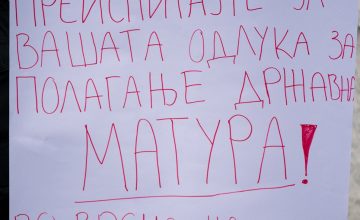 ПРЕИСПИТАЈТЕ ЈА
ВАШАТА ОДЛУКА ЗА
ПОЛАГАЊЕ ДРЖАВНА
МАТУРА!
ВО ВРЕМЕ НА